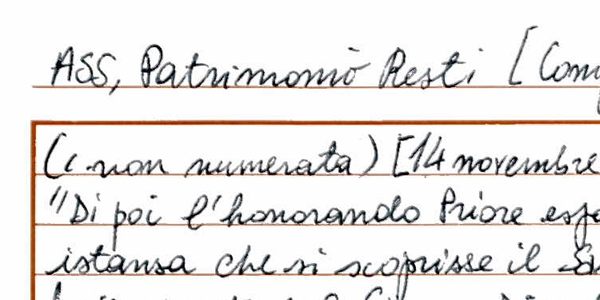 ASS, Patrimonio Resti [
(c. non numerata) [14 novembre
"Di poi l'honorando Priore
istansa che si scoprisse il